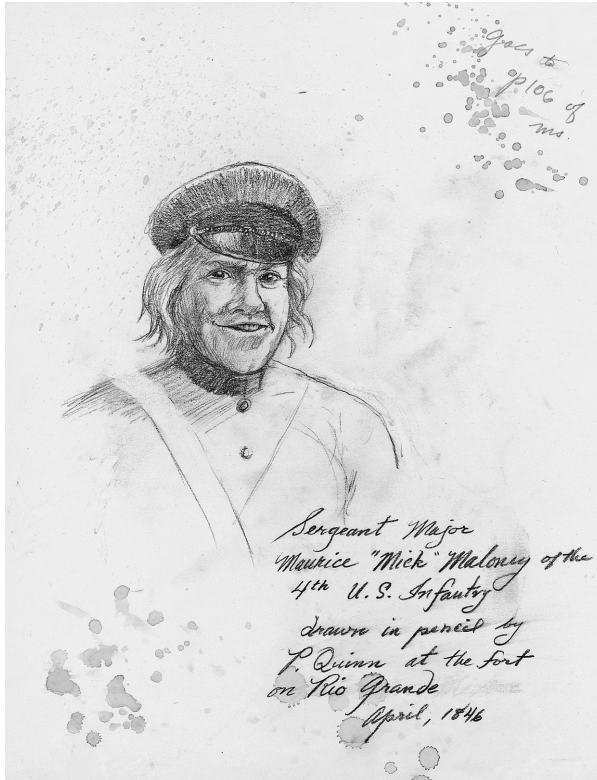 goes to
p106 of
ms.
Sergeant Major
Maurice "Mick" Maloney of the
4th U.S. Infantry
drawn in pencil by
P. Quinn at the fort
on Rio Grande
April, 1846